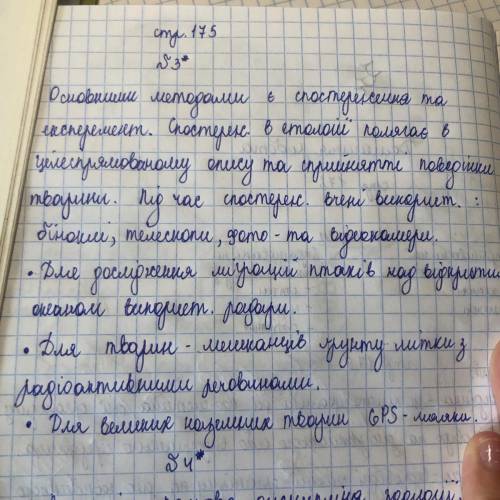 стр. 175
№3*
Основними методами є спостереження та
експеремент. Спостереж. в етології полягає в
цілеспрямованому опису та сприйнятті поведінки
тварини. Під час спостереж. вчені використ. :
біноклі, телескопи, фото - та відеокамери.
• Для дослідження міграцій птахів над відкритим
океаном використ. радари.
• Для тварин - мешканців ґрунту мітки з
радіоактивними речовинами.
• Для великих наземних тварин GPS - маяки.
№4*